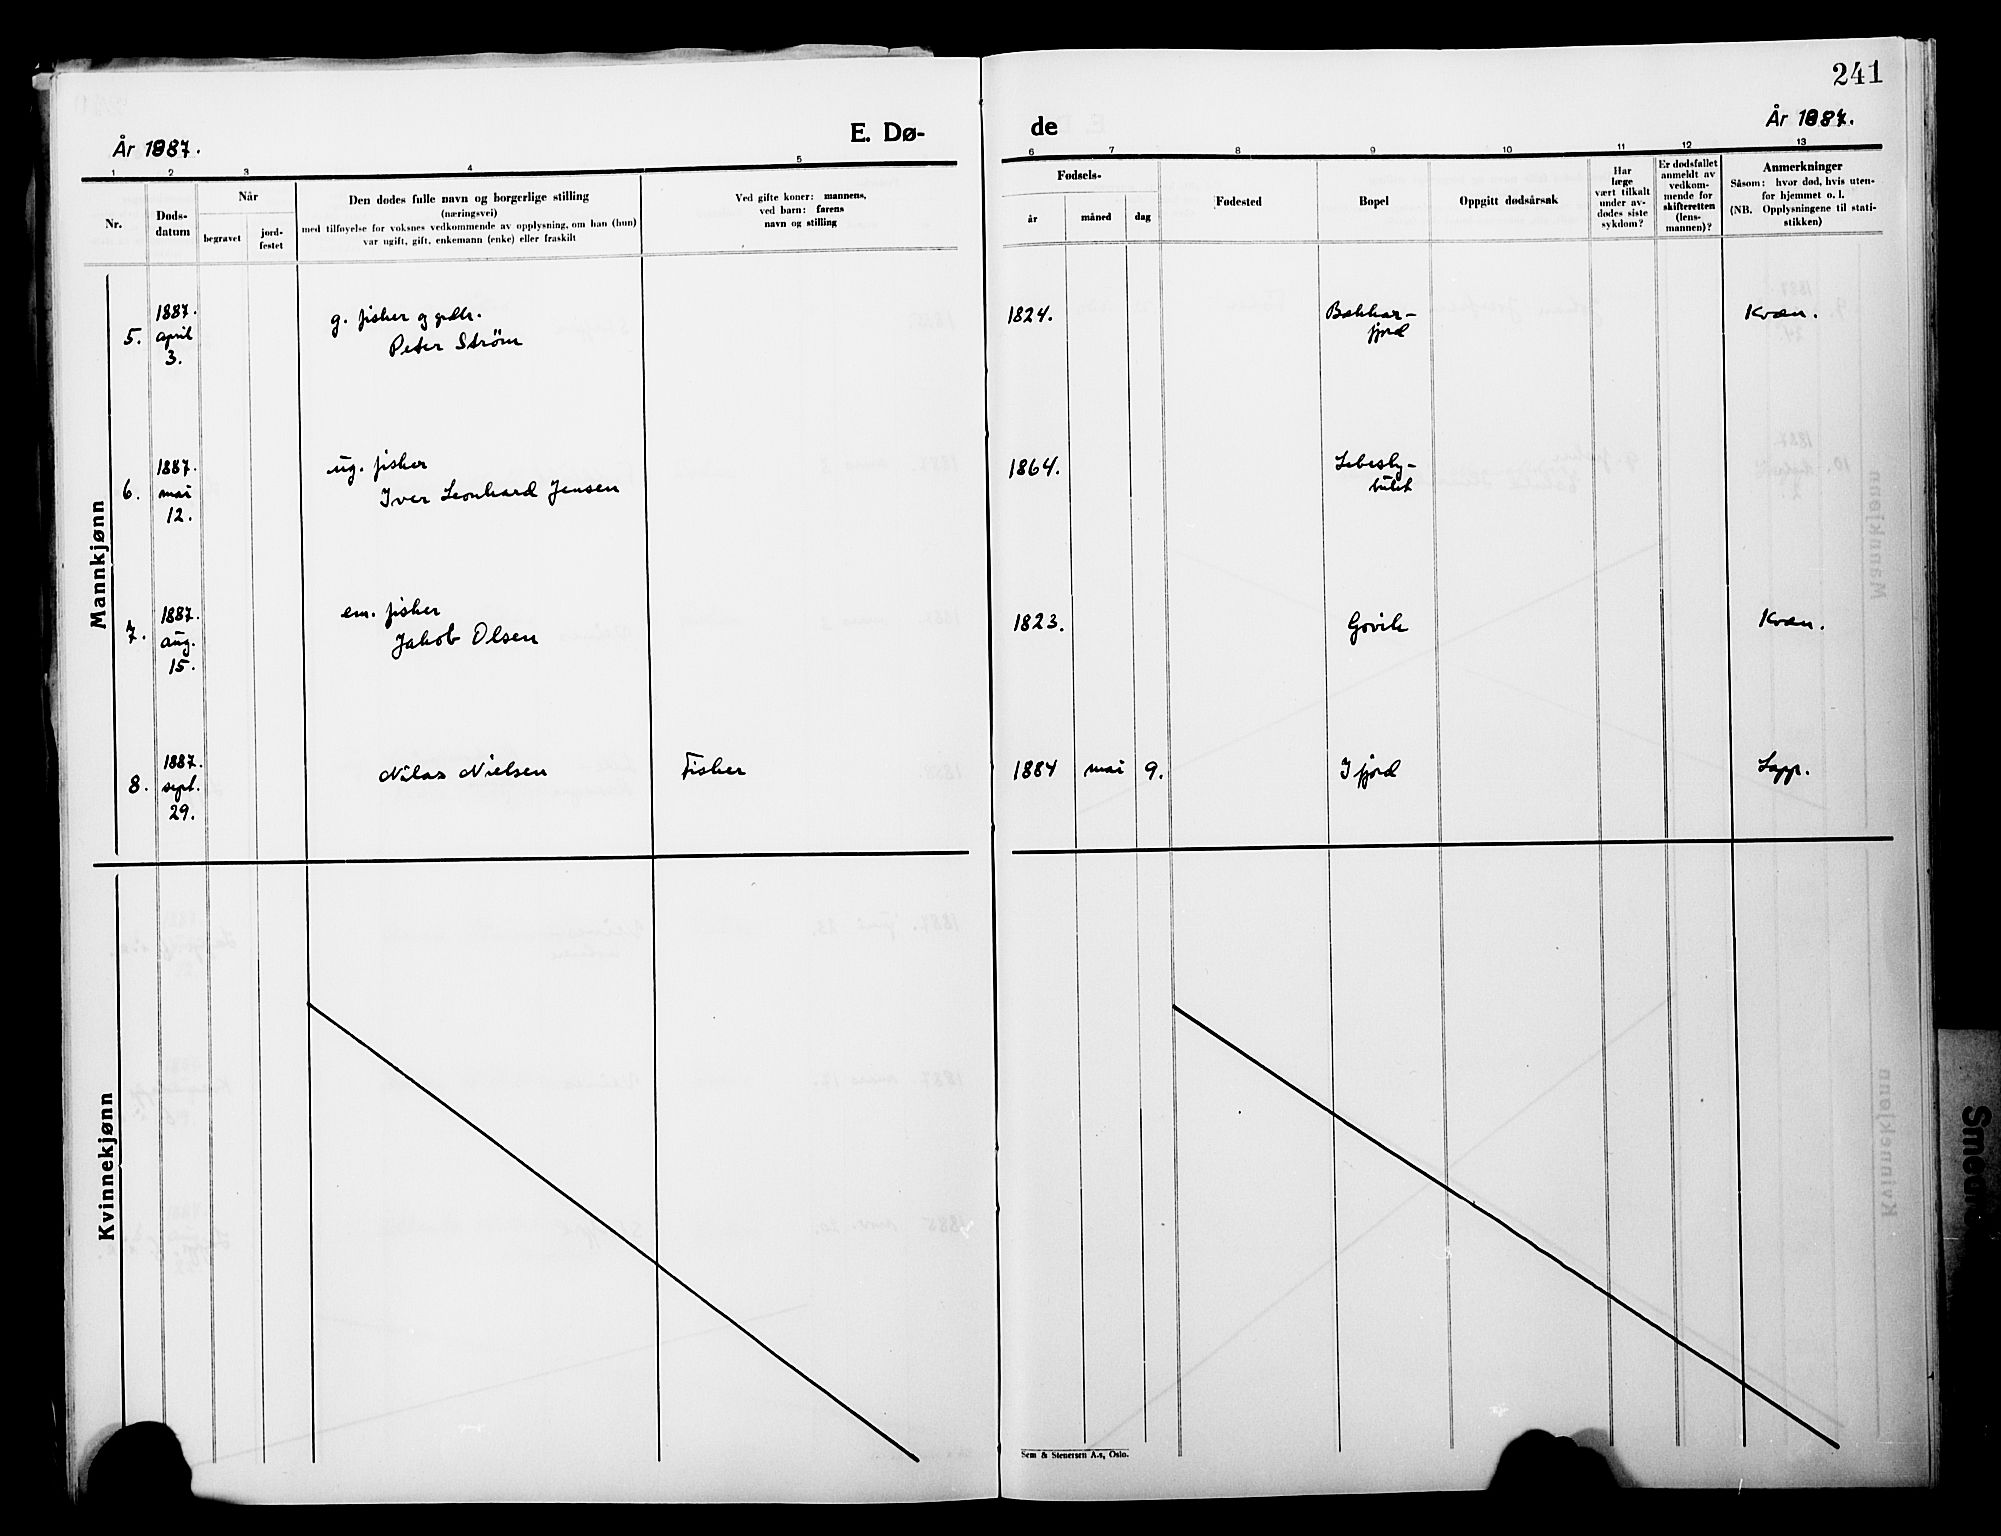 241
År 1887.
E. Dø-
de
År 1887.
1 2 3 4 5
6 7 8 9 10 11 12 13
Nr.
Døds-
datum
Når
begravet
jord-
festet
Den dødes fulle navn og borgerlige stilling
(næringsvei)
med tilføyelse for voksnes vedkommende av opplysning, om han (hun)
var ugift, gift, enkemann (enke) eller fraskilt
Ved gifte koner: mannens,
ved barn: farens
navn og stilling
Fødsels-
år
måned
dag
Fødested
Bopel
Oppgitt dødsårsak
Har
læge
vært tilkalt
under av-
dødes siste
sykdom?
Er dødsfallet
anmeldt av
vedkom-
mende for
skifteretten
(lens-
mannen)?
Anmerkninger
Såsom: hvor død, hvis uten-
for hjemmet o. l.
(NB. Opplysningene til stati-
stikken)
Mannkjønn
5.
1887.
april
3.
g. fisker og gdbr.
Peter Strøm
1824.
Bekkar-
fjord
Kvæn.
6.
1887.
mai
12.
ug. fisker
Iver Leonhard Jensen
1864.
Lebesby-
bukt
7.
1887.
aug.
15.
em. fisker
Jakob Olsen
1823.
Govik
Kvæn.
8.
1887.
sept.
29.
Nilas Nielsen
Fisker
1884 mai 9.
Ifjord
Lapp.
Kvinnekjønn
Sem & Stenersen A.s, Oslo.